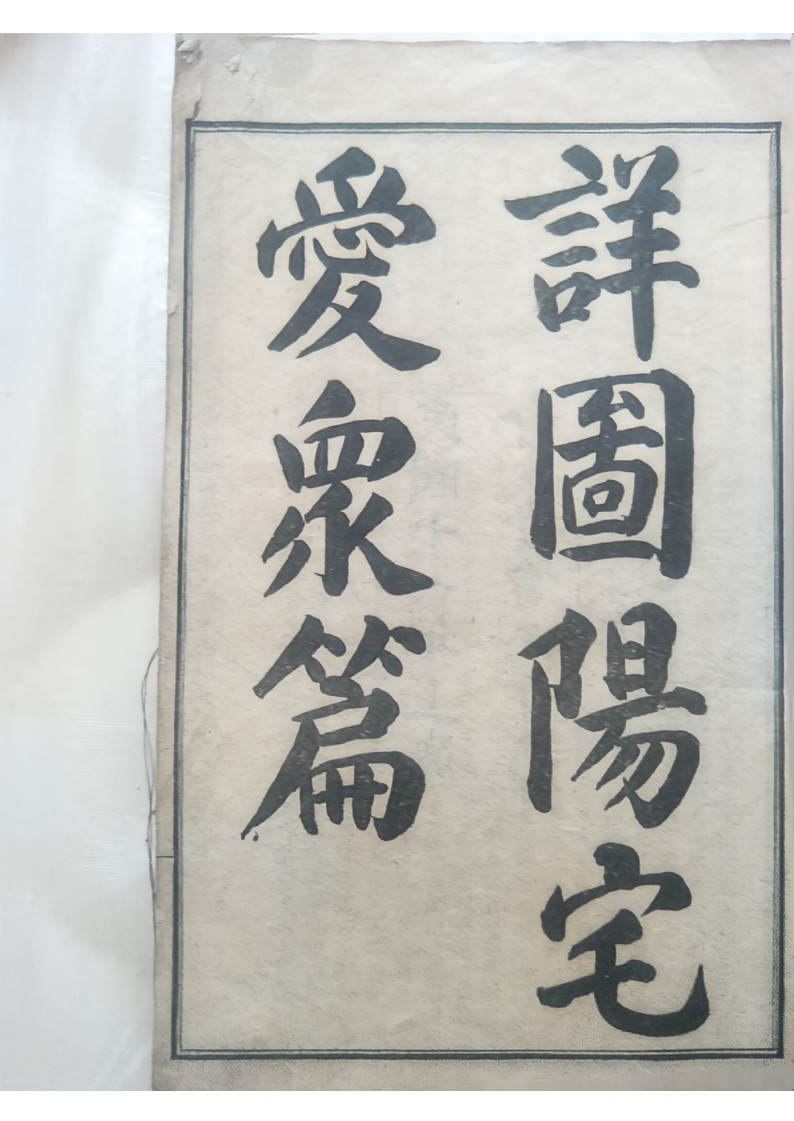 詳圖陽宅
愛眾篇